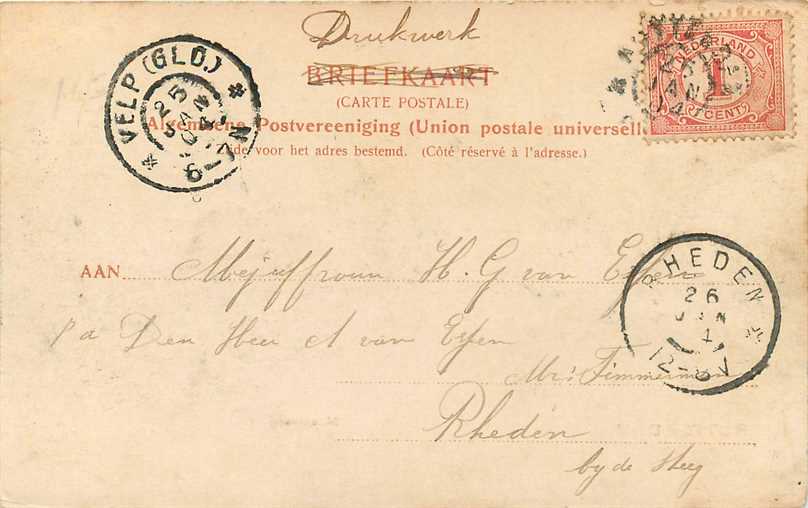 Drukwerk
BRIEFKAART
(CARTE POSTALE)
Algemeene Postvereeniging (Union postale universelle
zijde voor het adres bestemd. (Côté réservé à l'adresse.)
NEDERLAND
1
CENT
VELP (GLD.)
25
JAN
6-7N
AAN
Mejuffrouw H. G van Essen
p a Den Heer A van Essen
Mr Timmerman
Rheden
by de Steeg
RHEDEN
26
JAN
12-6V